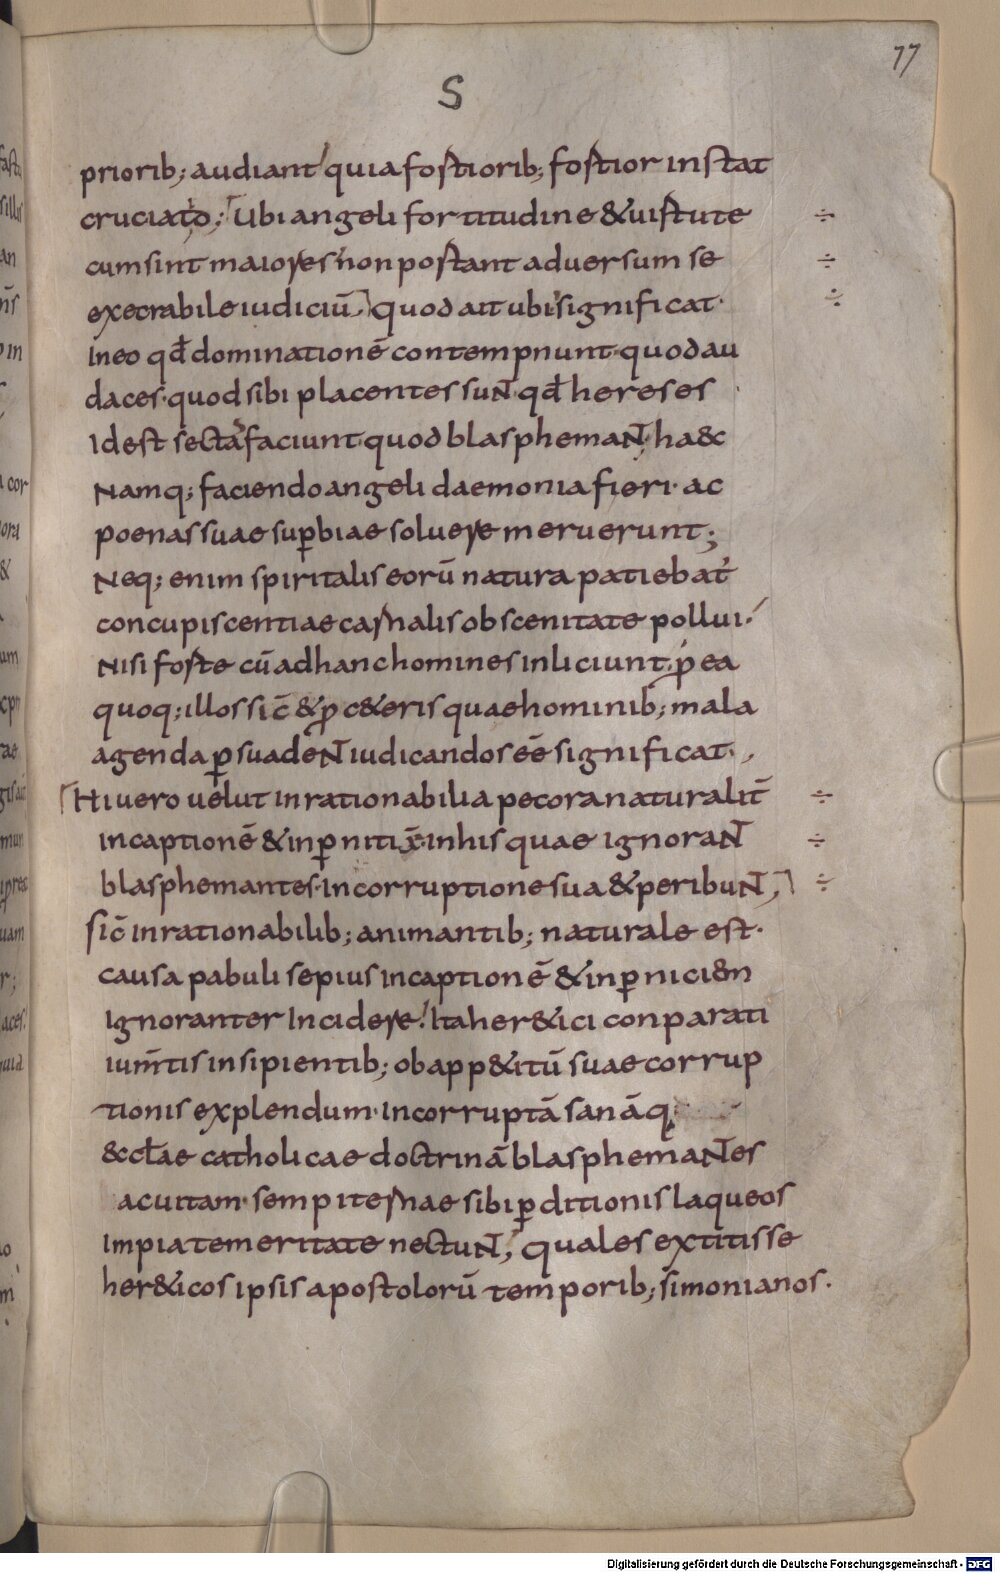 77
S
priorib; audiant quia fortiorib; fortior instat
cruciatio; Ubi angeli fortitudine & uirtute
cum sint maiores non portant aduersum se
execrabile iudiciū, quod ait ubi significat·
In eo qđ dominationē contempnunt· quod au
daces· quod sibi placentes sunt· qđ hereses
Id est sectas faciunt· quod blasphemant; ha&c
Namq; faciendo angeli daemonia fieri· ac
poenas suae suꝑbiae soluere meruerunt;
Neq; enim spiritalis eorū natura patiebat'
concupiscentiae carnalis obscenitate pollui·
Nisi forte cū ad hanc homines inliciunt· p ea
quoq; illos sic̄ & ꝓ c&eris quae hominib; mala
agenda ꝑsuadent iudicandos eē significat·,
Hi uero uelut inrationabilia pecora naturalit̄
in captionē & in ꝑnitiē· in his quae ignorant
blasphemantes· in corruptione sua & peribunt,
sic̄ inrationabilib; animantib; naturale est·
causa pabuli sepius in captionē & in ꝑniciēm
Ignoranter Incidere! Ita her&ici conparati
ium̄tis insipientib; ob app&itū suae corrup
tionis explendum· incorruptā sanāq;
& cl̄ae catholicae doctrinā blasphemantes
ac uitam· sempiternae sibi ꝑditionis laqueos
Impia temeritate nectunt, quales extitisse
her&icos ipsis apostolorū temporib; simonianos·
Digitalisierung gefördert durch die Deutsche Forschungsgemeinschaft - DFG